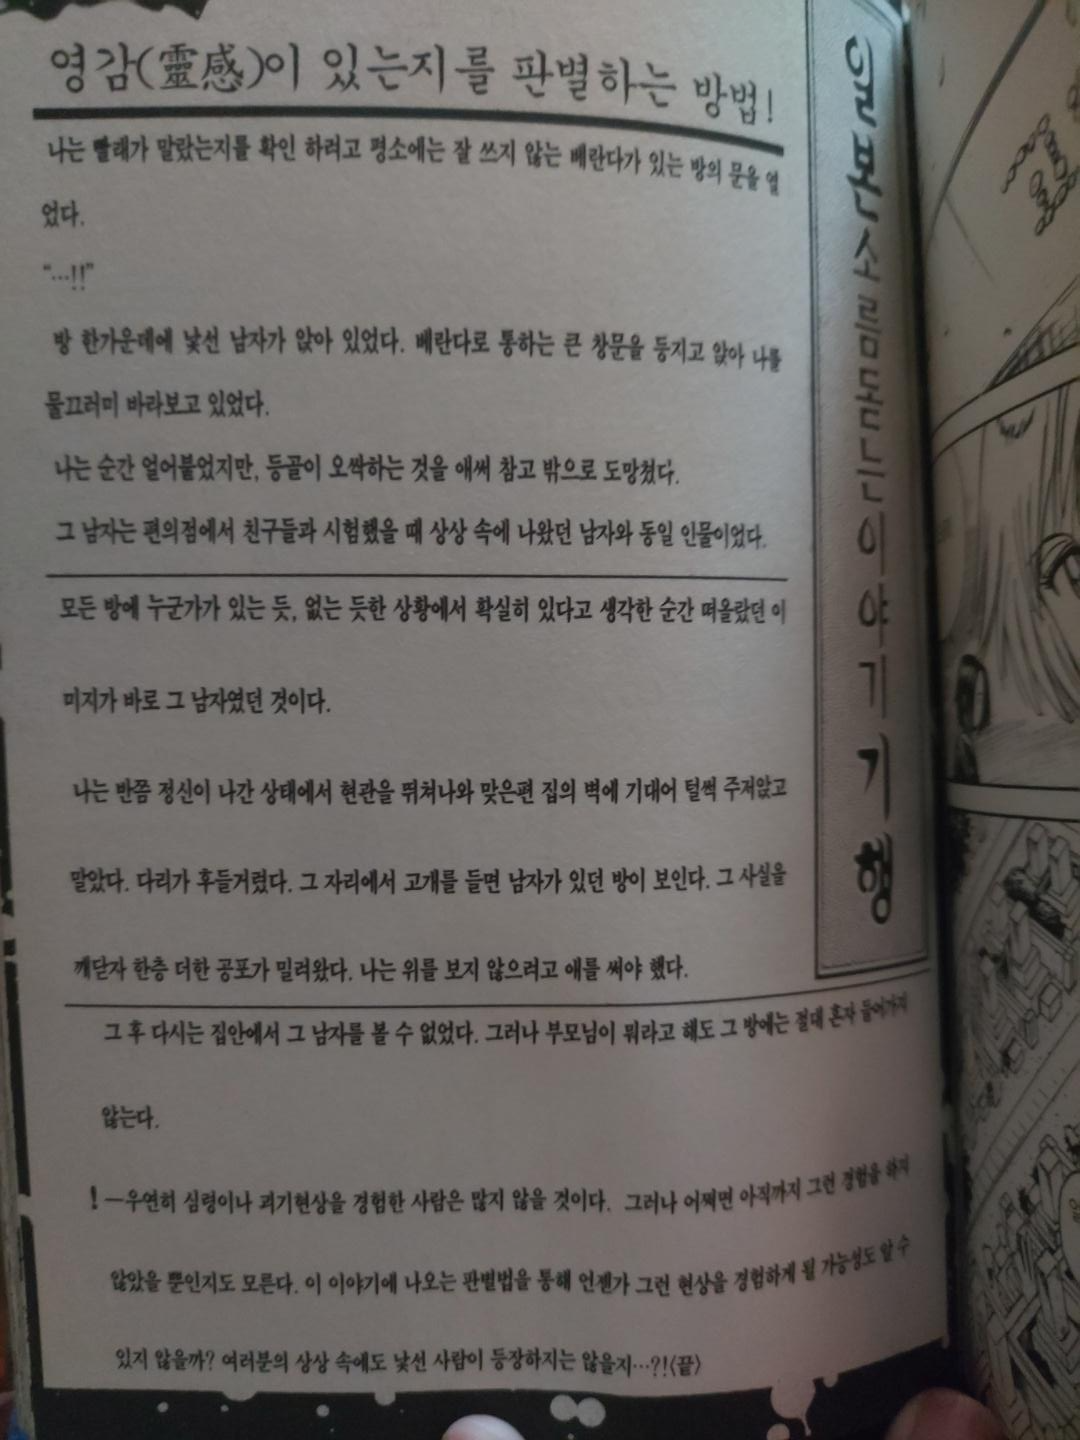 영감(靈感)이 있는지를 판별하는 방법!
나는 빨래가 말랐는지를 확인 하려고 평소에는 잘 쓰지 않는 베란다가 있는 방의 문을 열
었다.
“…!!”
방 한가운데에 낯선 남자가 앉아 있었다. 베란다로 통하는 큰 창문을 등지고 앉아 나를
물끄러미 바라보고 있었다.
나는 순간 얼어붙었지만, 등골이 오싹하는 것을 애써 참고 밖으로 도망쳤다.
그 남자는 편의점에서 친구들과 시험했을 때 상상 속에 나왔던 남자와 동일 인물이었다.
모든 방에 누군가가 있는 듯, 없는 듯한 상황에서 확실히 있다고 생각한 순간 떠올랐던 이
미지가 바로 그 남자였던 것이다.
나는 반쯤 정신이 나간 상태에서 현관을 뛰쳐나와 맞은편 집의 벽에 기대어 털썩 주저앉고
말았다. 다리가 후들거렸다. 그 자리에서 고개를 들면 남자가 있던 방이 보인다. 그 사실을
깨닫자 한층 더한 공포가 밀려왔다. 나는 위를 보지 않으려고 애를 써야 했다.
그 후 다시는 집안에서 그 남자를 볼 수 없었다. 그러나 부모님이 뭐라고 해도 그 방에는 절대 혼자 들어가지
않는다.
!―우연히 심령이나 괴기현상을 경험한 사람은 많지 않을 것이다. 그러나 어쩌면 아직까지 그런 경험을 하지
않았을 뿐인지도 모른다. 이 이야기에 나오는 판별법을 통해 언젠가 그런 현상을 경험하게 될 가능성도 알 수
있지 않을까? 여러분의 상상 속에도 낯선 사람이 등장하지는 않을지…?!(끝)
일본 소름돋는 이야기 기행